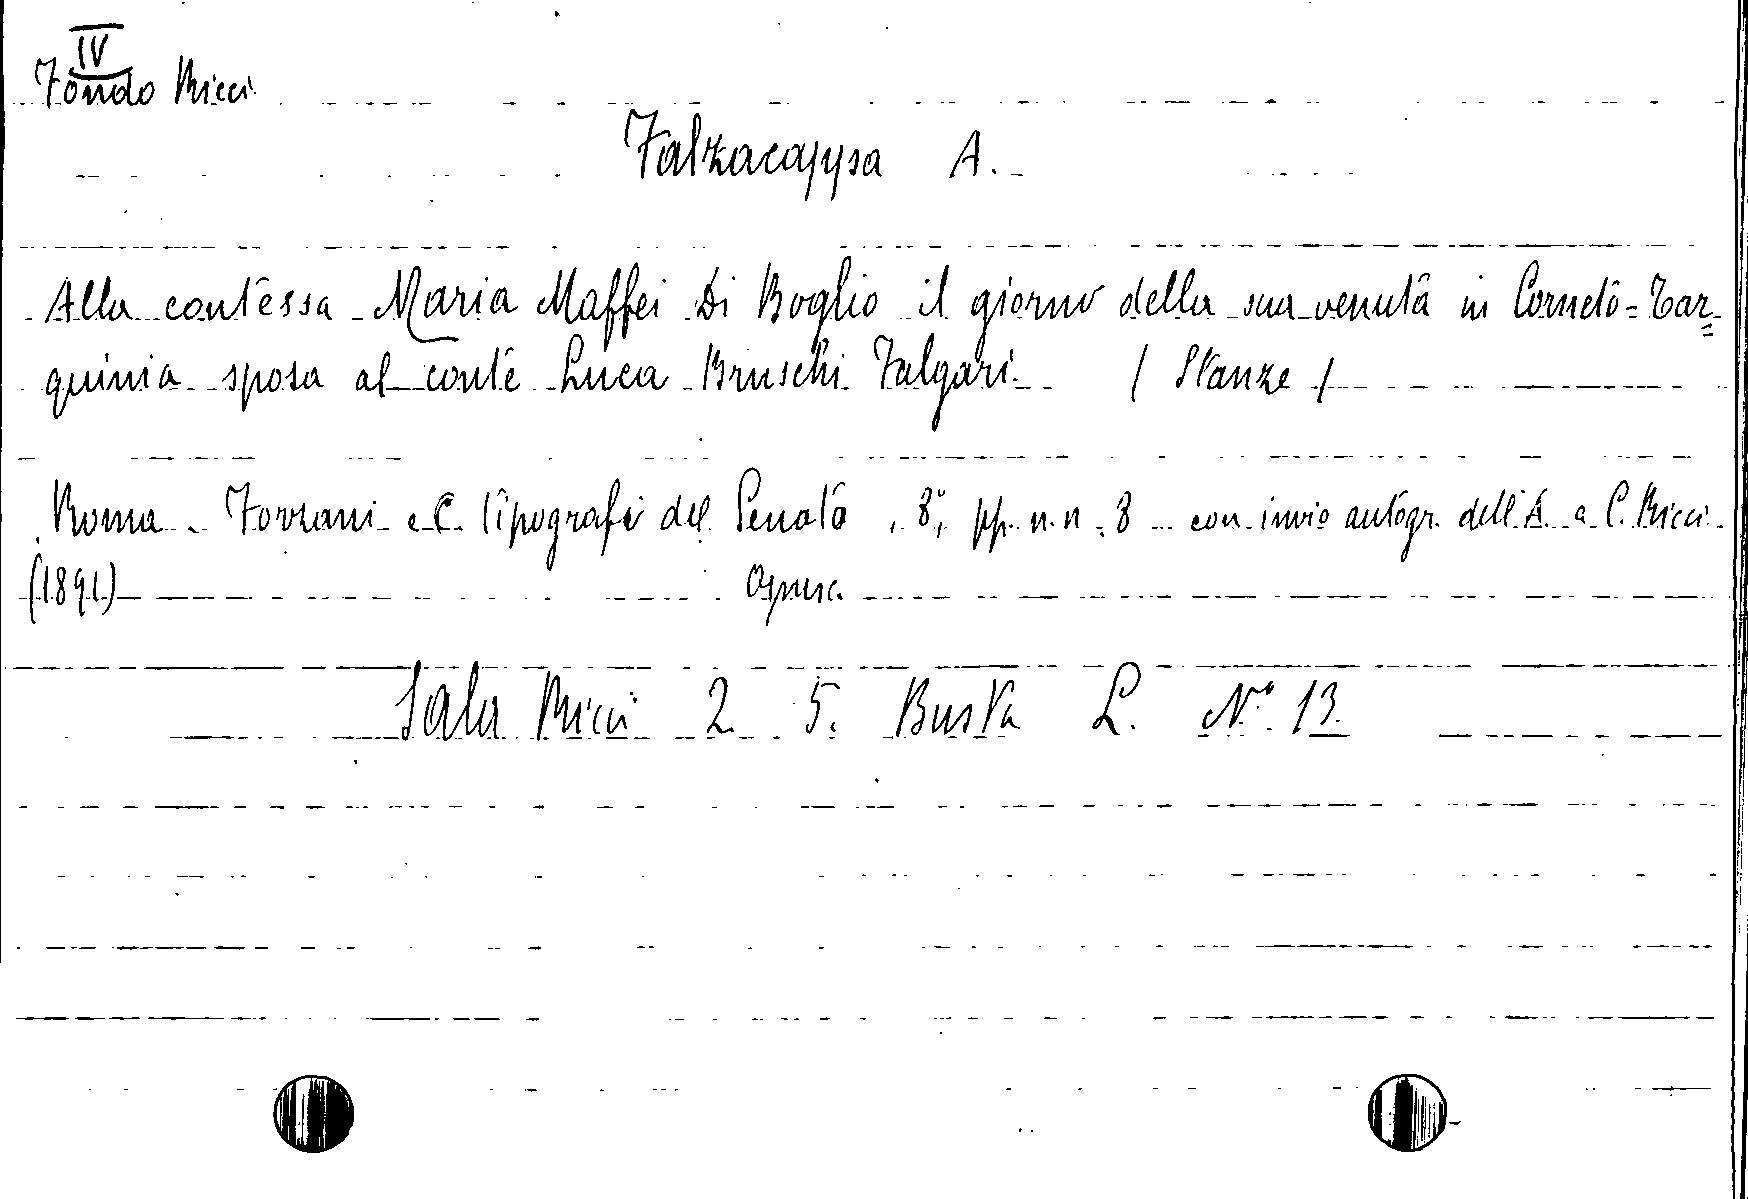 IV
Fondo Ricci
Falzacappa A.
Alla contessa Maria Maffei Di Boglio il giorno della sua venuta in Corneto=Tar=
quinia sposa al conte Luca Bruschi Falgari. ( Stanze )
Roma. Forzani e C. tipografi del Senato, 8°, pp. n. n. 8 con invio autogr. dell'A. a C. Ricci
(1891) Opusc.
Sala Ricci 2 5. Busta L. N° 13.